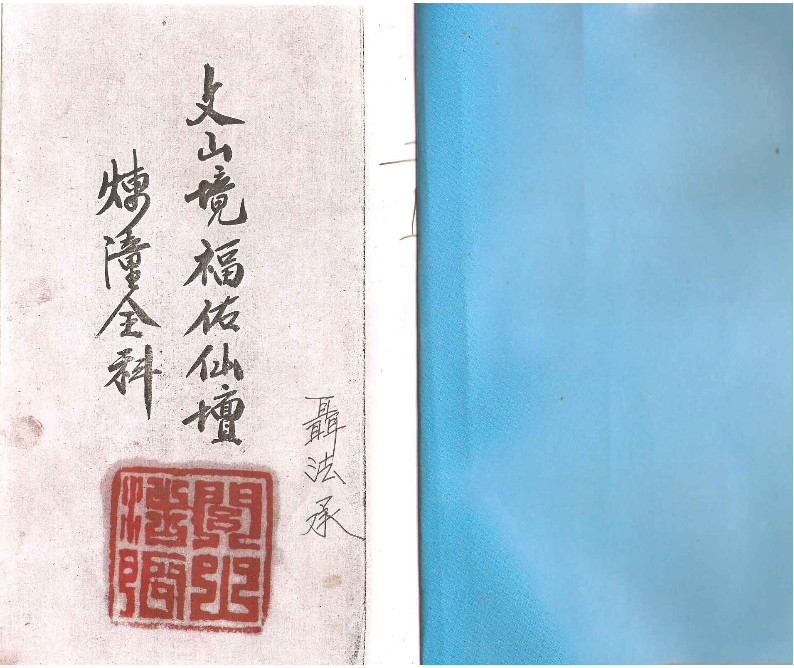 聶法承
文山境福佑仙壇
煉潼全科